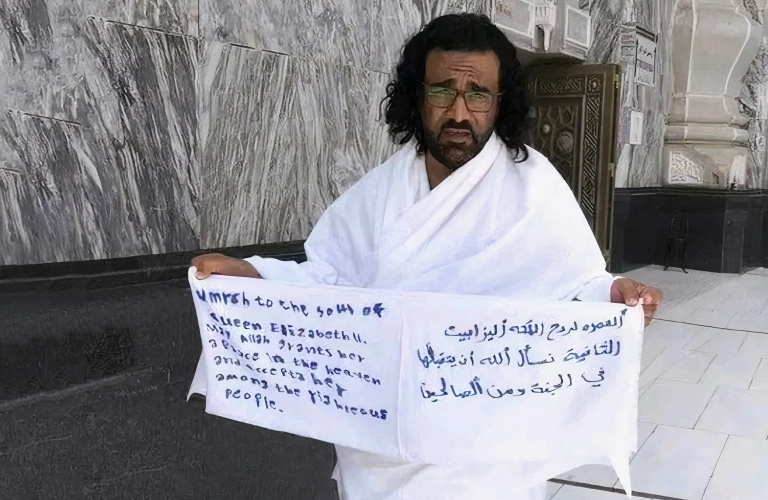 Umrah to the soul of
Queen Elizabeth II.
May Allah grants her
a place in the heaven
and accepts her
among the righteous
people.
ألعمره لروح الملكه أليزابيت
الثانية نسأل الله أن يتقبلها
في الجنة ومن الصالحين